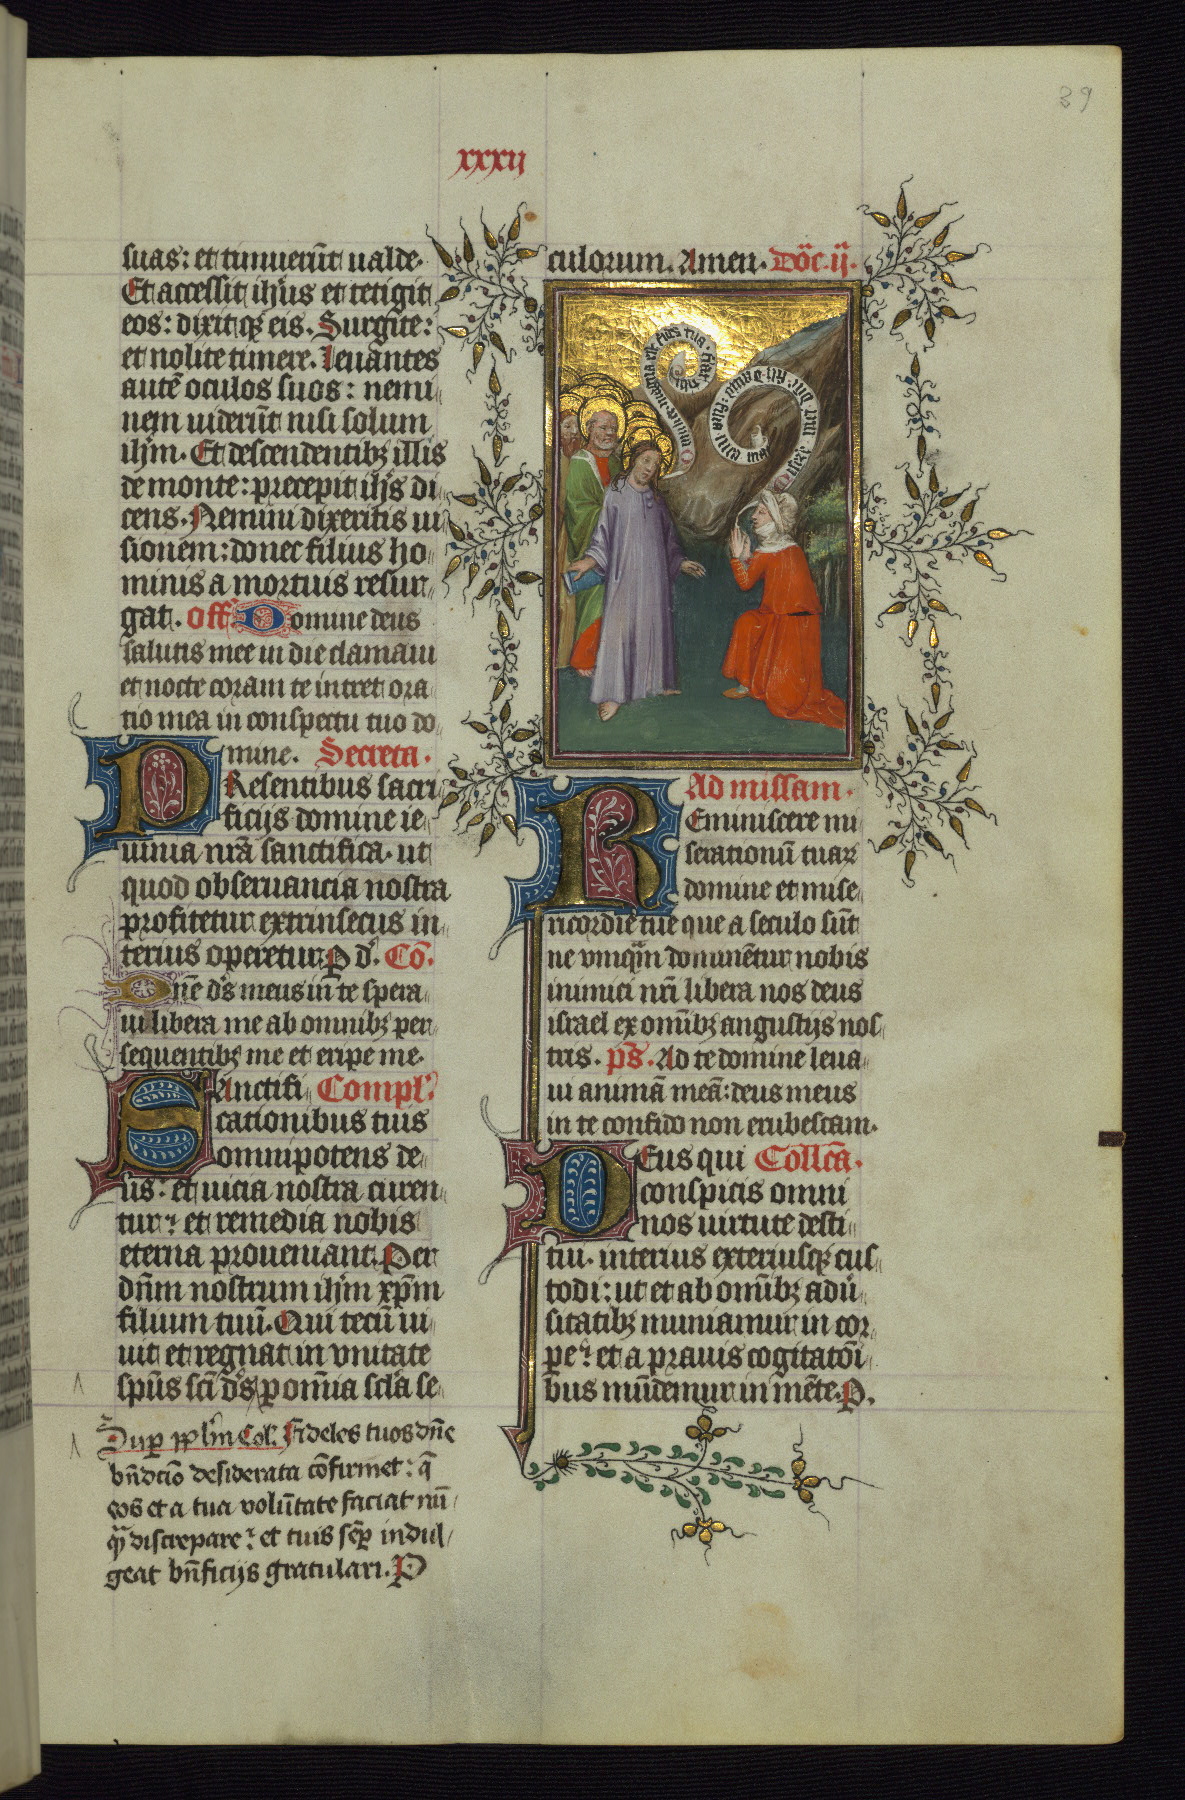 39
xxxii
suas: et timuerūt ualde.
Et accessit ihſus et tetigit
eos: dixitqꝫ eis. Surgite:
et nolite timere. Leuantes
autē oculos suos: nemi
nem uiderūt nisi solum
ihm. Et descendentibꝫ illis
de monte: precepit ihs di
cens. Nemini dixeritis ui
sionem: donec filius ho
minis a mortuis resur
gat. Off. Domine deus
salutis mee in die clamaui
et nocte coram te intret ora
tio mea in conspectu tuo do
mine. Secreta.
PResentibus sacri
ficijs domine ie
iunia nr̄a sanctifica. ut
quod obseruancia nostra
profitetur extrinsecus in
terius operetur. P d. Cō.
Dne ds meus in te spera
ui libera me ab omnibꝫ per
sequentibꝫ me et eripe me.
SAnctifi Compl.
cationibus tuis
omnipotens de
us: et uicia nostra curen
tur: et remedia nobis
eterna proueniant. Per
dn̄m nostrum ihm xpm
filium tuū. Qui tecū ui
uit et regnat in vnitate
spūs sc̄i ds p om̄ia sc̄la se
Sup pplm Col. Fideles tuos dn̄e
bn̄dc̄io desiderata cōfirmet: q̄
eos et a tua volūtate faciat nū
qͣ discrepare: et tuis semꝑ indul
geat bn̄ficijs gratulari. P
culorum. Amen. Dōc ij.
mulier magna est fides tua: fiat tibi
miserere mei dn̄e fili dauid: filia mea
Ad missam.
REminiscere mi
serationū tuaꝝ
domine et mise
ricordie tue que a seculo sūt
ne vmqͣm dominētur nobis
inimici nr̄i libera nos deus
israel ex omībꝫ angustijs nos
tris. ps. Ad te domine leua
ui animā meā: deus meus
in te confido non erubescam.
DEus qui Collc̄a.
conspicis omni
nos uirtute desti
tui. interius exteriusqꝫ cus
todi: ut et ab omībꝫ aduˀ
sitatibꝫ muniamur in cor
pe: et a prauis cogitatōi
bus mūdemur in mēte. P.